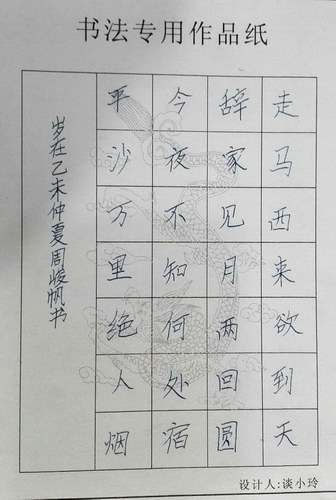 书法专用作品纸
走马西来欲到天
辞家见月两回圆
今夜不知何处宿
平沙万里绝人烟
岁在乙未仲夏周峻帆书
设计人:谈小玲